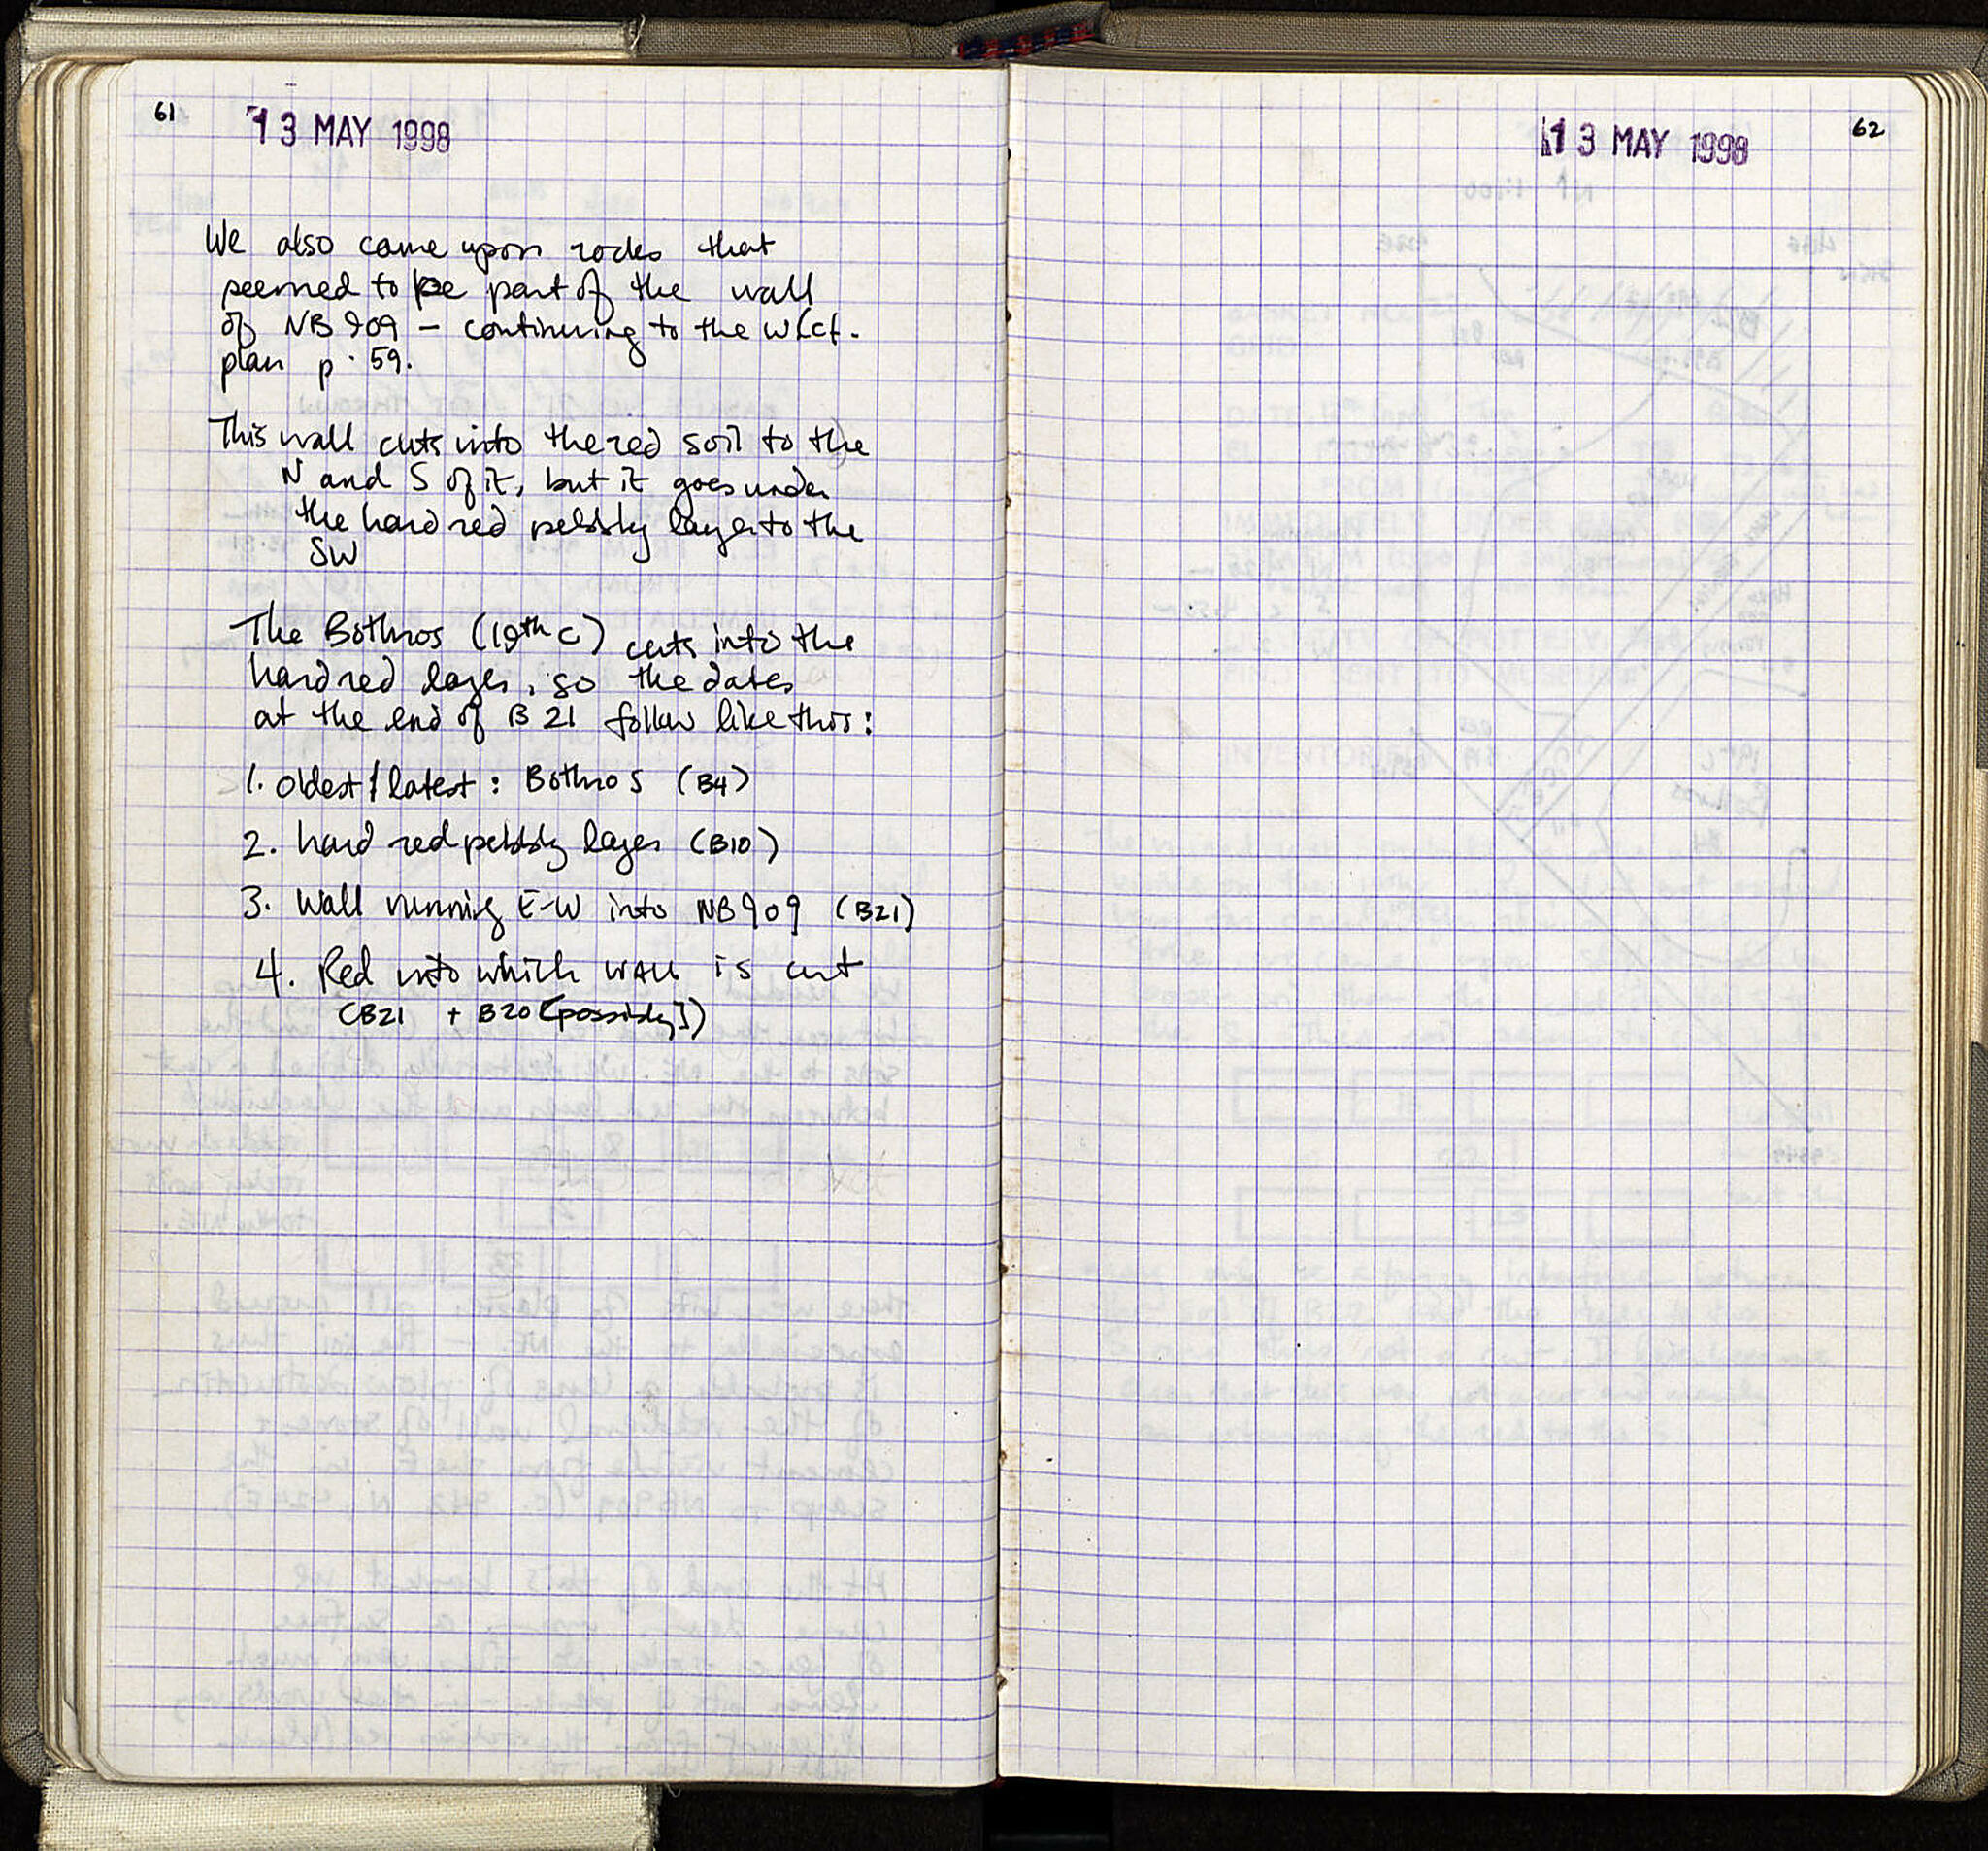 61
13 MAY 1998
We also came upon rocks that
seemed to be part of the wall
of NB 909 – continuing to the W (cf.
plan p. 59.
This wall cuts into the red soil to the
N and S of it, but it goes under
the hard red pebbly layer to the
SW
The Bothros (19th c) cuts into the
hard red layer, so the dates
at the end of B 21 follow like this:
1. Oldest/latest: Bothros (B4)
2. hard red pebbly layer (B10)
3. Wall running E-W into NB909 (B21)
4. Red into which WALL is cut
(B21 + B20 [possibly])
13 MAY 1998
62